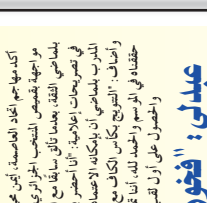 أكد مهاجم اتحاد العاصمة، ايمن مح
مواجهة بقميص المنتخب الجزائري
بلماضي الثقة، بعدما تألق سابقا مع
في تصريحات إعلامية: "أنا أحضر
المدرب بلماضي أن بإمكانه الاعتماد
وأضاف: "التتويج بكأس الكاف مع
حققناه في الموسم والحمد لله، أننا
والحصول على أول لقب
عبدلي : "فخور